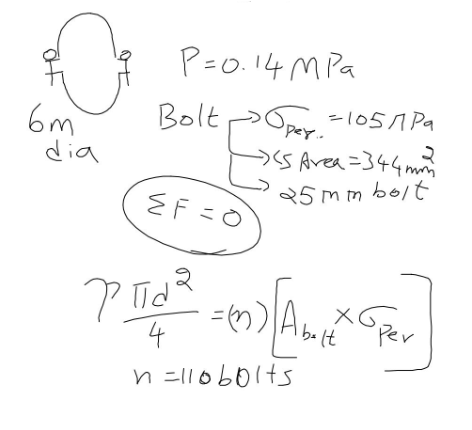 P=0.14 MPa
6m
dia
Bolt → σper. = 105 MPa
→ CS Area = 344 mm²
→ 25mm bolt
ΣF = 0
P πd²/4 = (n) [Abolt × σPer]
n = 110 bolts